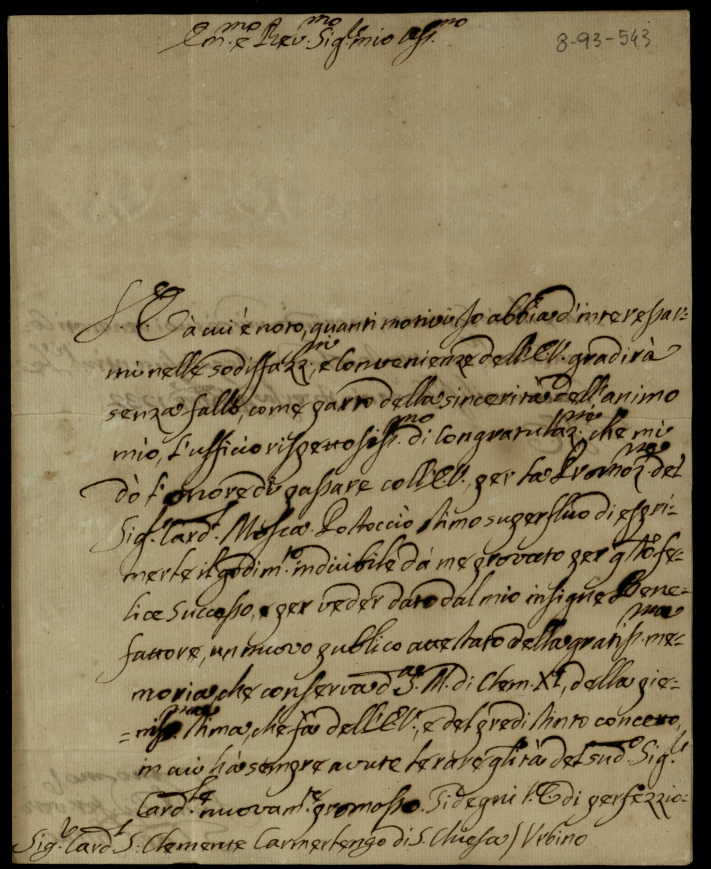 Em.mo e Rev.mo Sig.r mio Oss.mo
8-93-543
V. E. à cui è noto, quanti motivi Io abbia d'interessar=
mi nelle sodisfazz.ni, e Convenienze dell'E.V. gradirà
senza fallo, come parto della sincerità dell'animo
mio, l'ufficio rispettosiss.mo di congratulaz.ne che mi
dò l'onore di passare coll'E.V., per la Promoz.ne del
Sig.r Card.l Mosca. Poscia stimo superfluo di espri=
merle il godim.to indicibile da me provato per q.to fe=
lice Successo, e per veder dato dal mio insigne Bene=
fattore, un nuovo publico attestato della gratiss.ma me=
moria che conserva d S. M. di Clem. XI, della pie=
niss.ma stima, che fà dell'E.V., e del predistinto concetto,
in cui hà sempre avute le rare qlità del sud.o Sig.r
Card.le nuovam.te promosso. Si degni l'E.V. di perfezzio=
Sig.r Card.l S. Clemente Camerlengo di S. Chiesa / Urbino